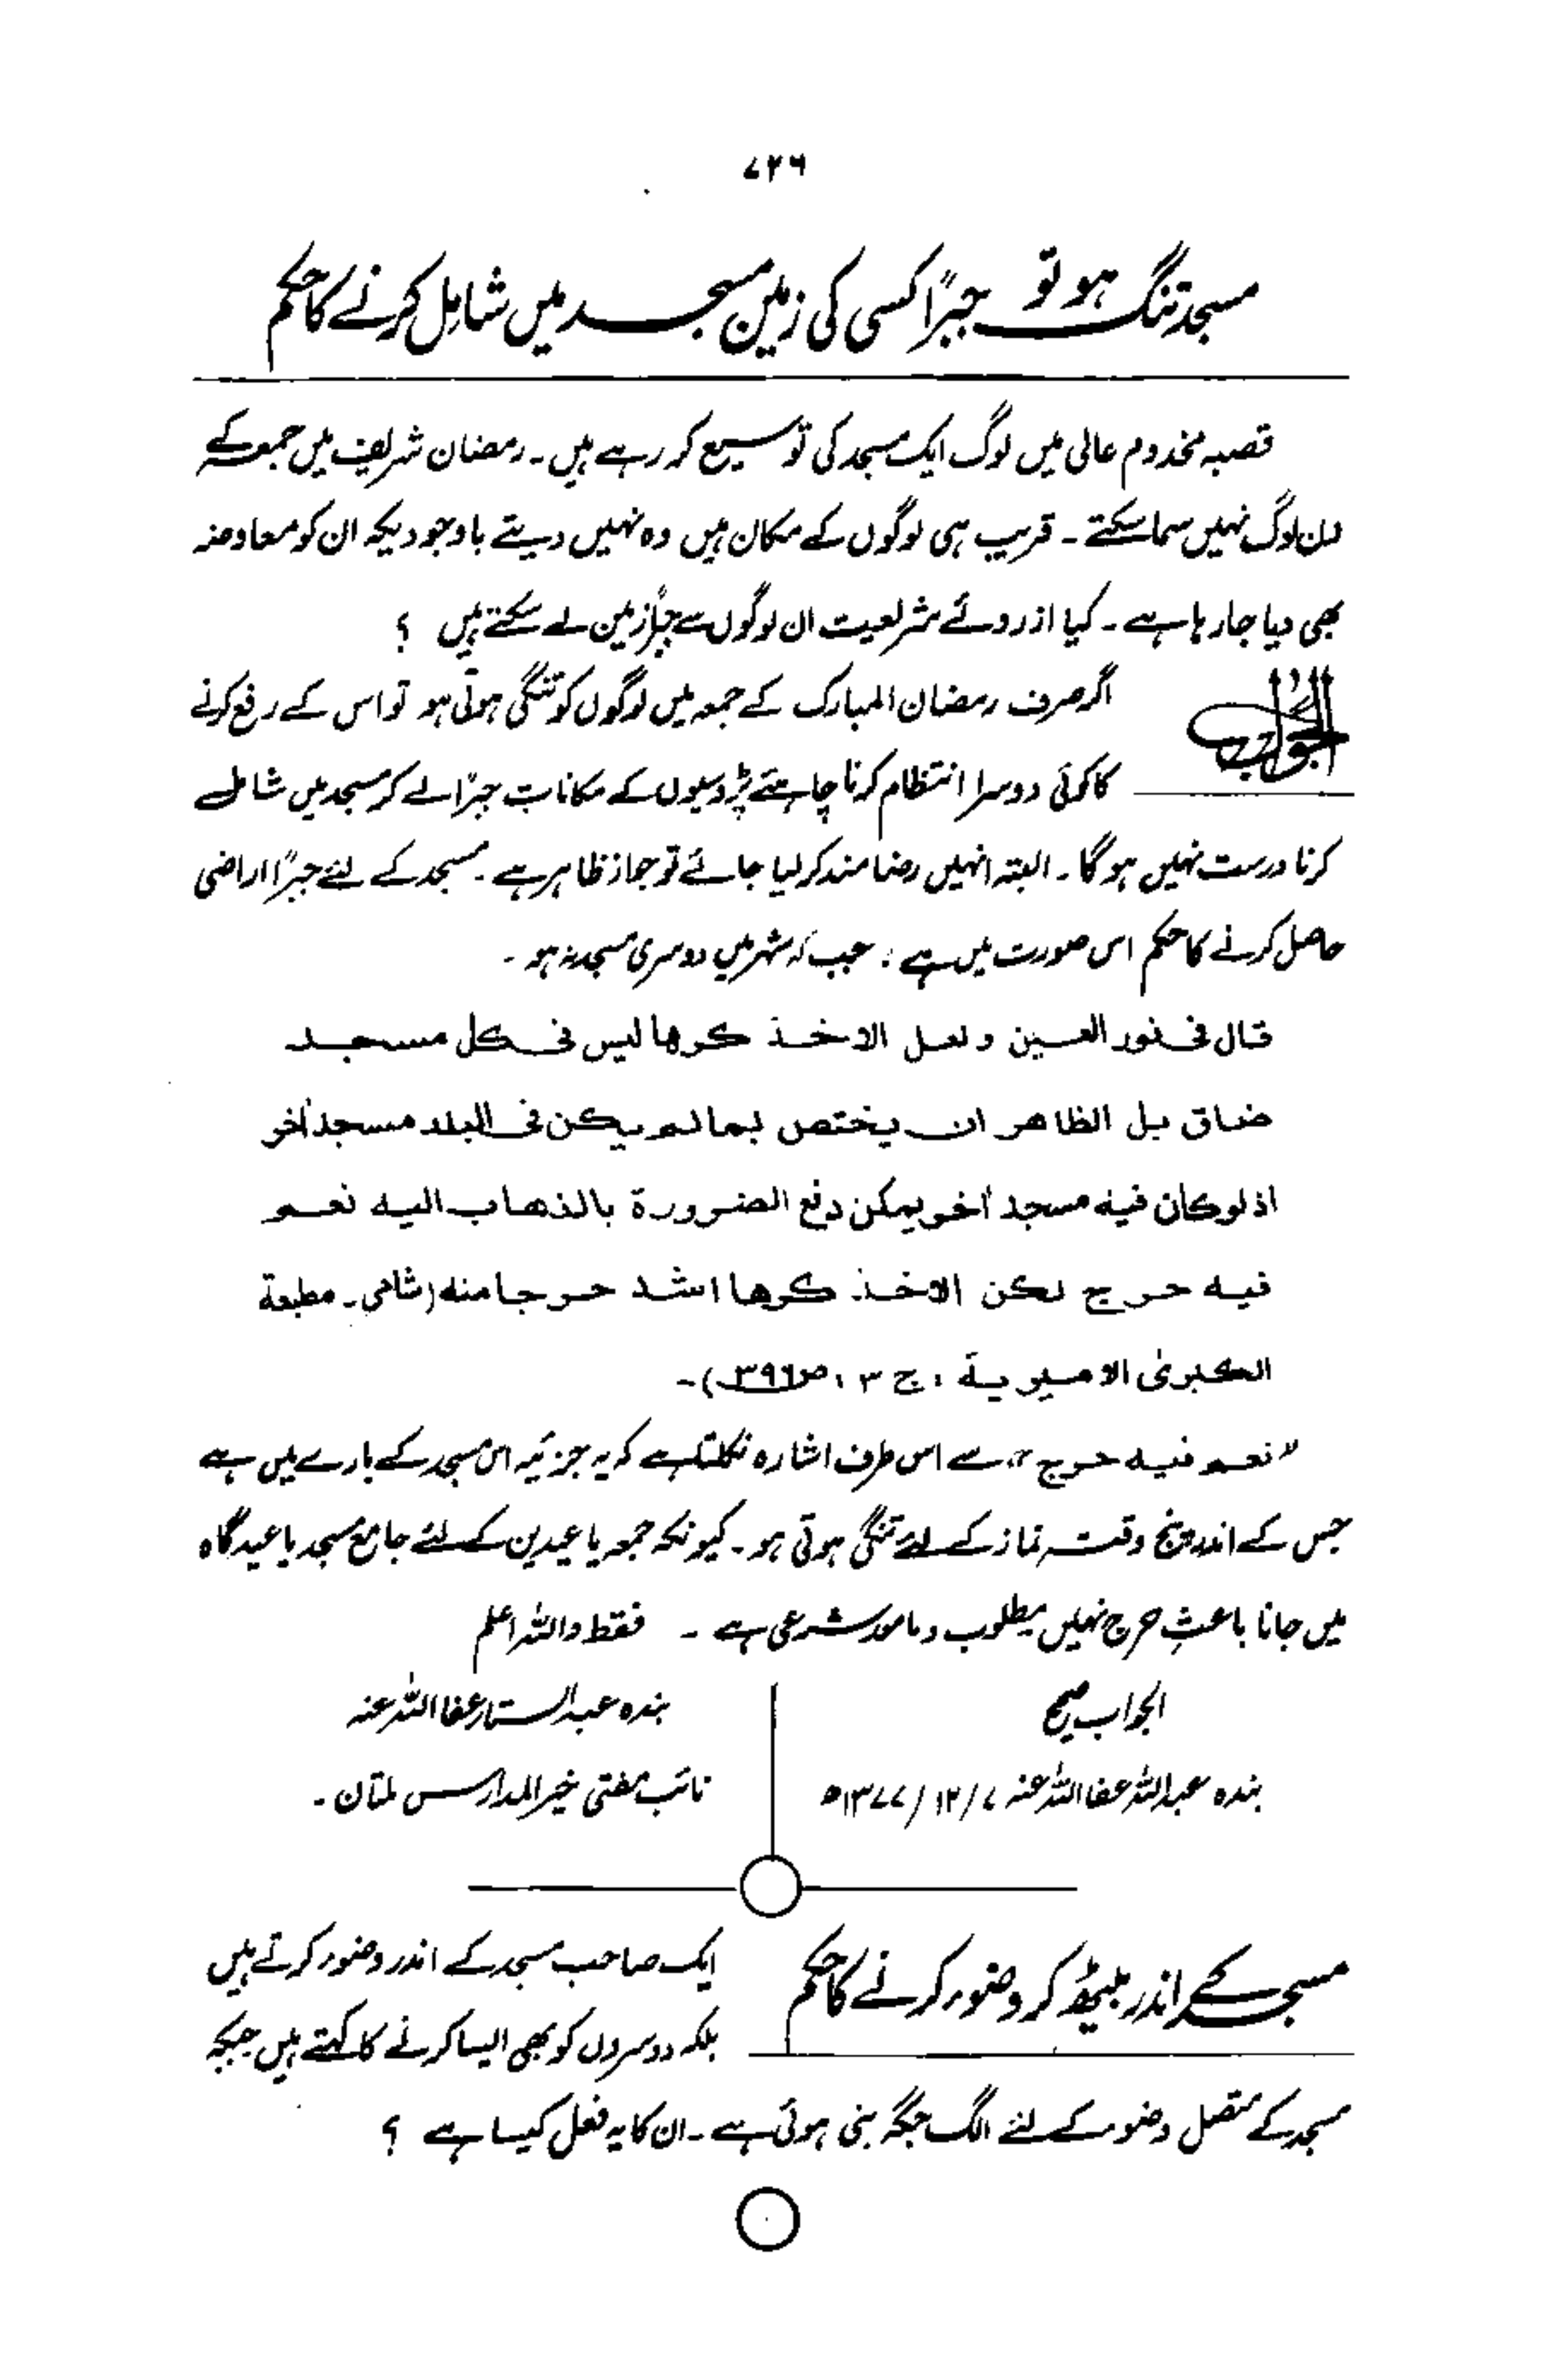 ۷۲۶
مسجد تنگ ہو تو جبراً کسی کی زمین مسجد میں شامل کرنے کا حکم
قصبہ مخدوم عالی میں لوگ ایک مسجد کی توسیع کر رہے ہیں۔ رمضان شریف میں جمعہ کے
دن لوگ نہیں سما سکتے۔ قریب ہی لوگوں کے مکان ہیں وہ نہیں دیتے باوجودیکہ ان کو معاوضہ
بھی دیا جا رہا ہے۔ کیا از روئے شریعت ان لوگوں سے جبراً زمین لے سکتے ہیں ؟
الجواب اگر صرف رمضان المبارک کے جمعہ میں لوگوں کو تنگی ہوتی ہو تو اس کے رفع کرنے
کا کوئی دوسرا انتظام کرنا چاہئے پڑوسیوں کے مکانات جبراً لے کر مسجد میں شامل
کرنا درست نہیں ہوگا۔ البتہ انہیں رضا مند کر لیا جائے تو جواز ظاہر ہے۔ مسجد کے لئے جبراً اراضی
حاصل کرنے کا حکم اس صورت میں ہے ، جب کہ شہر میں دوسری مسجد نہ ہو ۔
قال فی نور العین ولعل الاخذ کرها لیس فی کل مسجد
ضاق بل الظاهر ان یختص بما لم یکن فی البلد مسجد اٰخر
اذ لو کان فیه مسجد اٰخر یمکن دفع الضرورة بالذهاب الیه نعم
فیه حرج لکن الاخذ کرها اشد حرجا منه (شامی۔ مطبعة
الکبریٰ الامیریة ، ج ۳ ، ص۳۹۶)۔
”نعم فیه حرج“ سے اس طرف اشارہ نکلتا ہے کہ یہ جزئیہ اس مسجد کے بارے میں ہے
جس کے اندر پنج وقتہ نماز کے لئے تنگی ہوتی ہو۔ کیونکہ جمعہ یا عیدین کے لئے جامع مسجد یا عیدگاہ
میں جانا باعثِ حرج نہیں مطلوب و مامور شرعی ہے ۔ فقط واللہ اعلم
الجواب صحیح
بندہ عبداللہ عفا اللہ عنہ ۷/۱۲/۱۳۷۷ھ
بندہ عبدالستار عفا اللہ عنہ
نائب مفتی خیر المدارس ملتان ۔
مسجد کے اندر بیٹھ کر وضوء کرنے کا حکم
ایک صاحب مسجد کے اندر وضوء کرتے ہیں
بلکہ دوسروں کو بھی ایسا کرنے کا کہتے ہیں جبکہ
مسجد کے متصل وضو کے لئے الگ جگہ بنی ہوئی ہے۔ ان کا یہ فعل کیسا ہے ؟